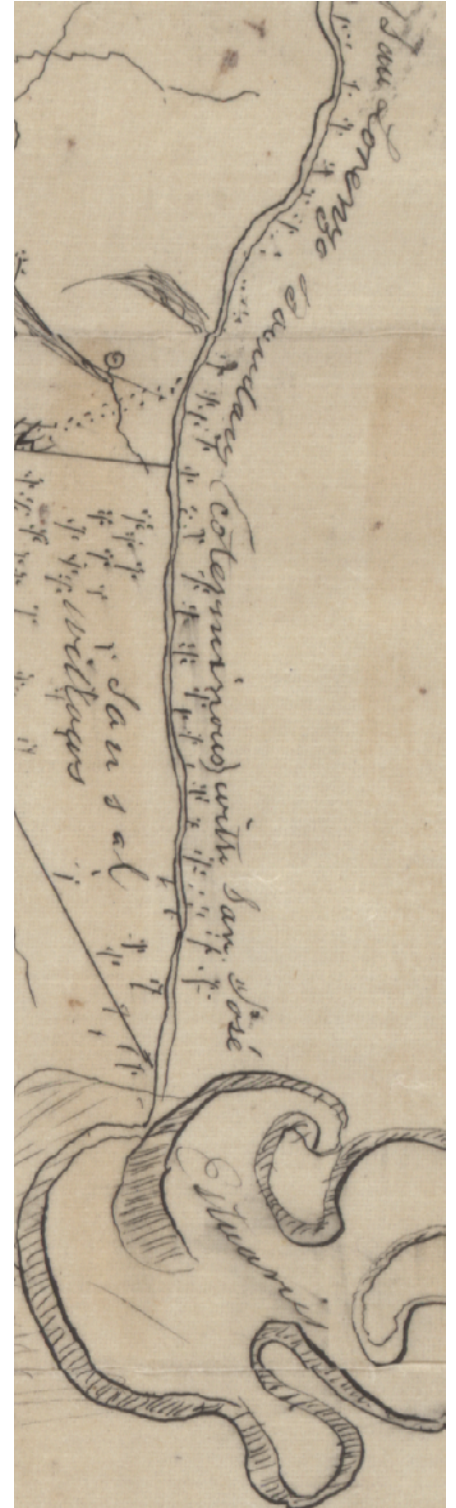 San Lorenzo Boundary Cotersminous with San José
San sal
willows
Estuaries